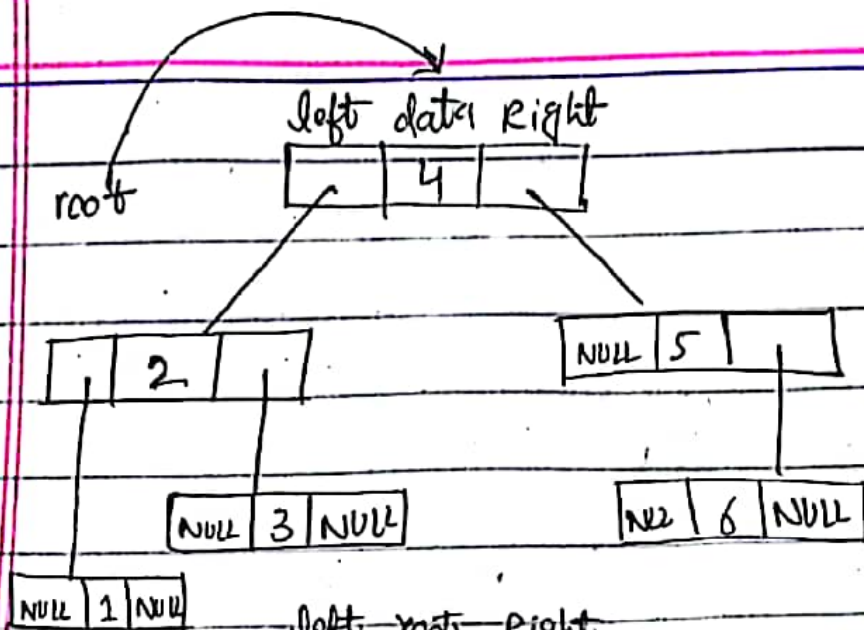 left data Right
root
4
2
NULL 5
NULL 3 NULL
NULL 6 NULL
NULL 1 NULL
left root Right